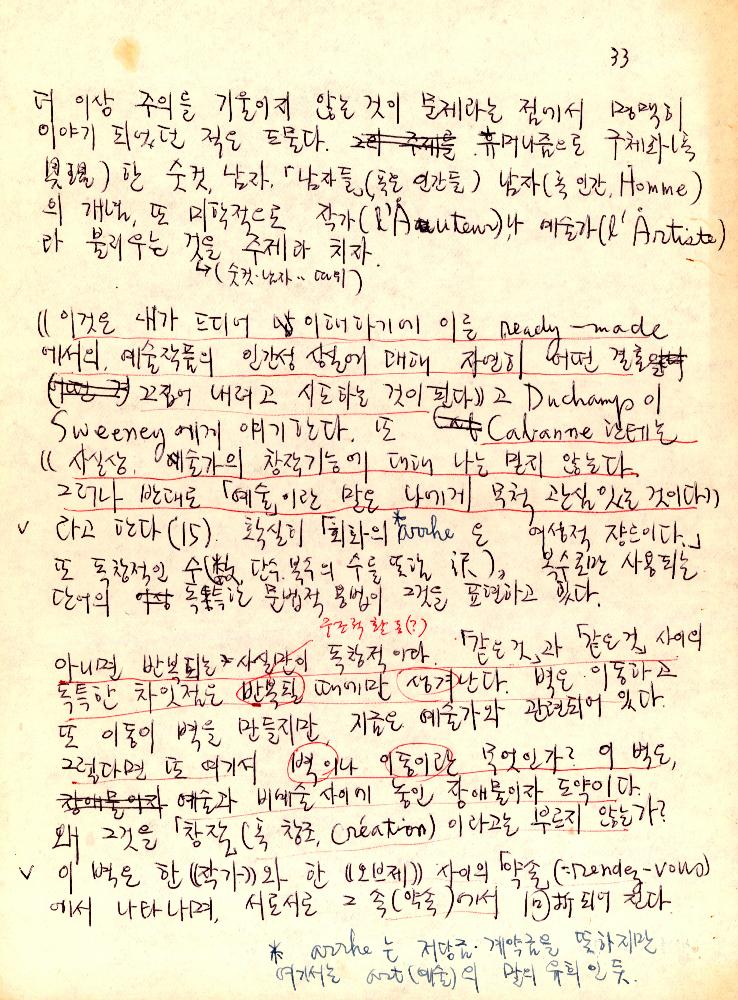 33
더 이상 주의를 기울이지 않는 것이 문제라는 점에서 명백히
이야기 되었던 적은 드물다. 휴머니즘으로 구체화(혹
具現) 한 숫컷, 남자. 「남자들」(혹은 인간들) 남자(혹 인간, Homme)
의 개념, 또 미학적으로 작가(l'Auteur)나 예술가(l'Artiste)
라 불리우는 것을 주제라 치자.
↳(숫컷·남자‥ 따위)
《 이것은 내가 드디어 이해하기에 이른 ready-made
에서의, 예술작품의 인간성 상실에 대해 자연히 어떤 결론을
끄집어 내려고 시도하는 것이 된다》고 Duchamp이
Sweeney에게 얘기한다. 또 Cabanne 한테는
《 사실상, 예술가의 창작기능에 대해 나는 믿지 않는다.
그러나 반대로 「예술」이란 말은 나에게 무척 관심있는 것이다》
✓ 라고 한다(15). 확실히 「회화의 *arrhe 은 여성적 쟝르이다.」
또 독창적인 수(數, 단수·복수의 수를 뜻함 訳), 복수로만 사용되는
단어의 독특한 문법적 용법이 그것을 표명하고 있다.
무조적 활동(?)
아니면 반복되는 사실만이 독창적이다. 「같은 것」과 「같은 것」 사이의
독특한 차잇점은 반복될 때에만 생겨난다. 벽은 이동하고
또 이동이 벽을 만들지만, 지금은 예술가와 관련되어 있다.
그렇다면 또 여기서 벽이나 이동이란 무엇인가? 이 벽은,
예술과 비예술 사이에 놓인 장애물이자 도약이다.
왜 그것을 「창작」(혹 창조, Création)이라고는 부르지 않는가?
✓ 이 벽은 한 《작가》와 한 《오브제》 사이의 「약속」(=rendez-vous)
에서 나타나며, 서로서로 그 속(약속)에서 回折되어 진다.
* arrhe는 저당금·계약금을 뜻하지만
여기서는 art(예술)의 말의 유희인 듯.